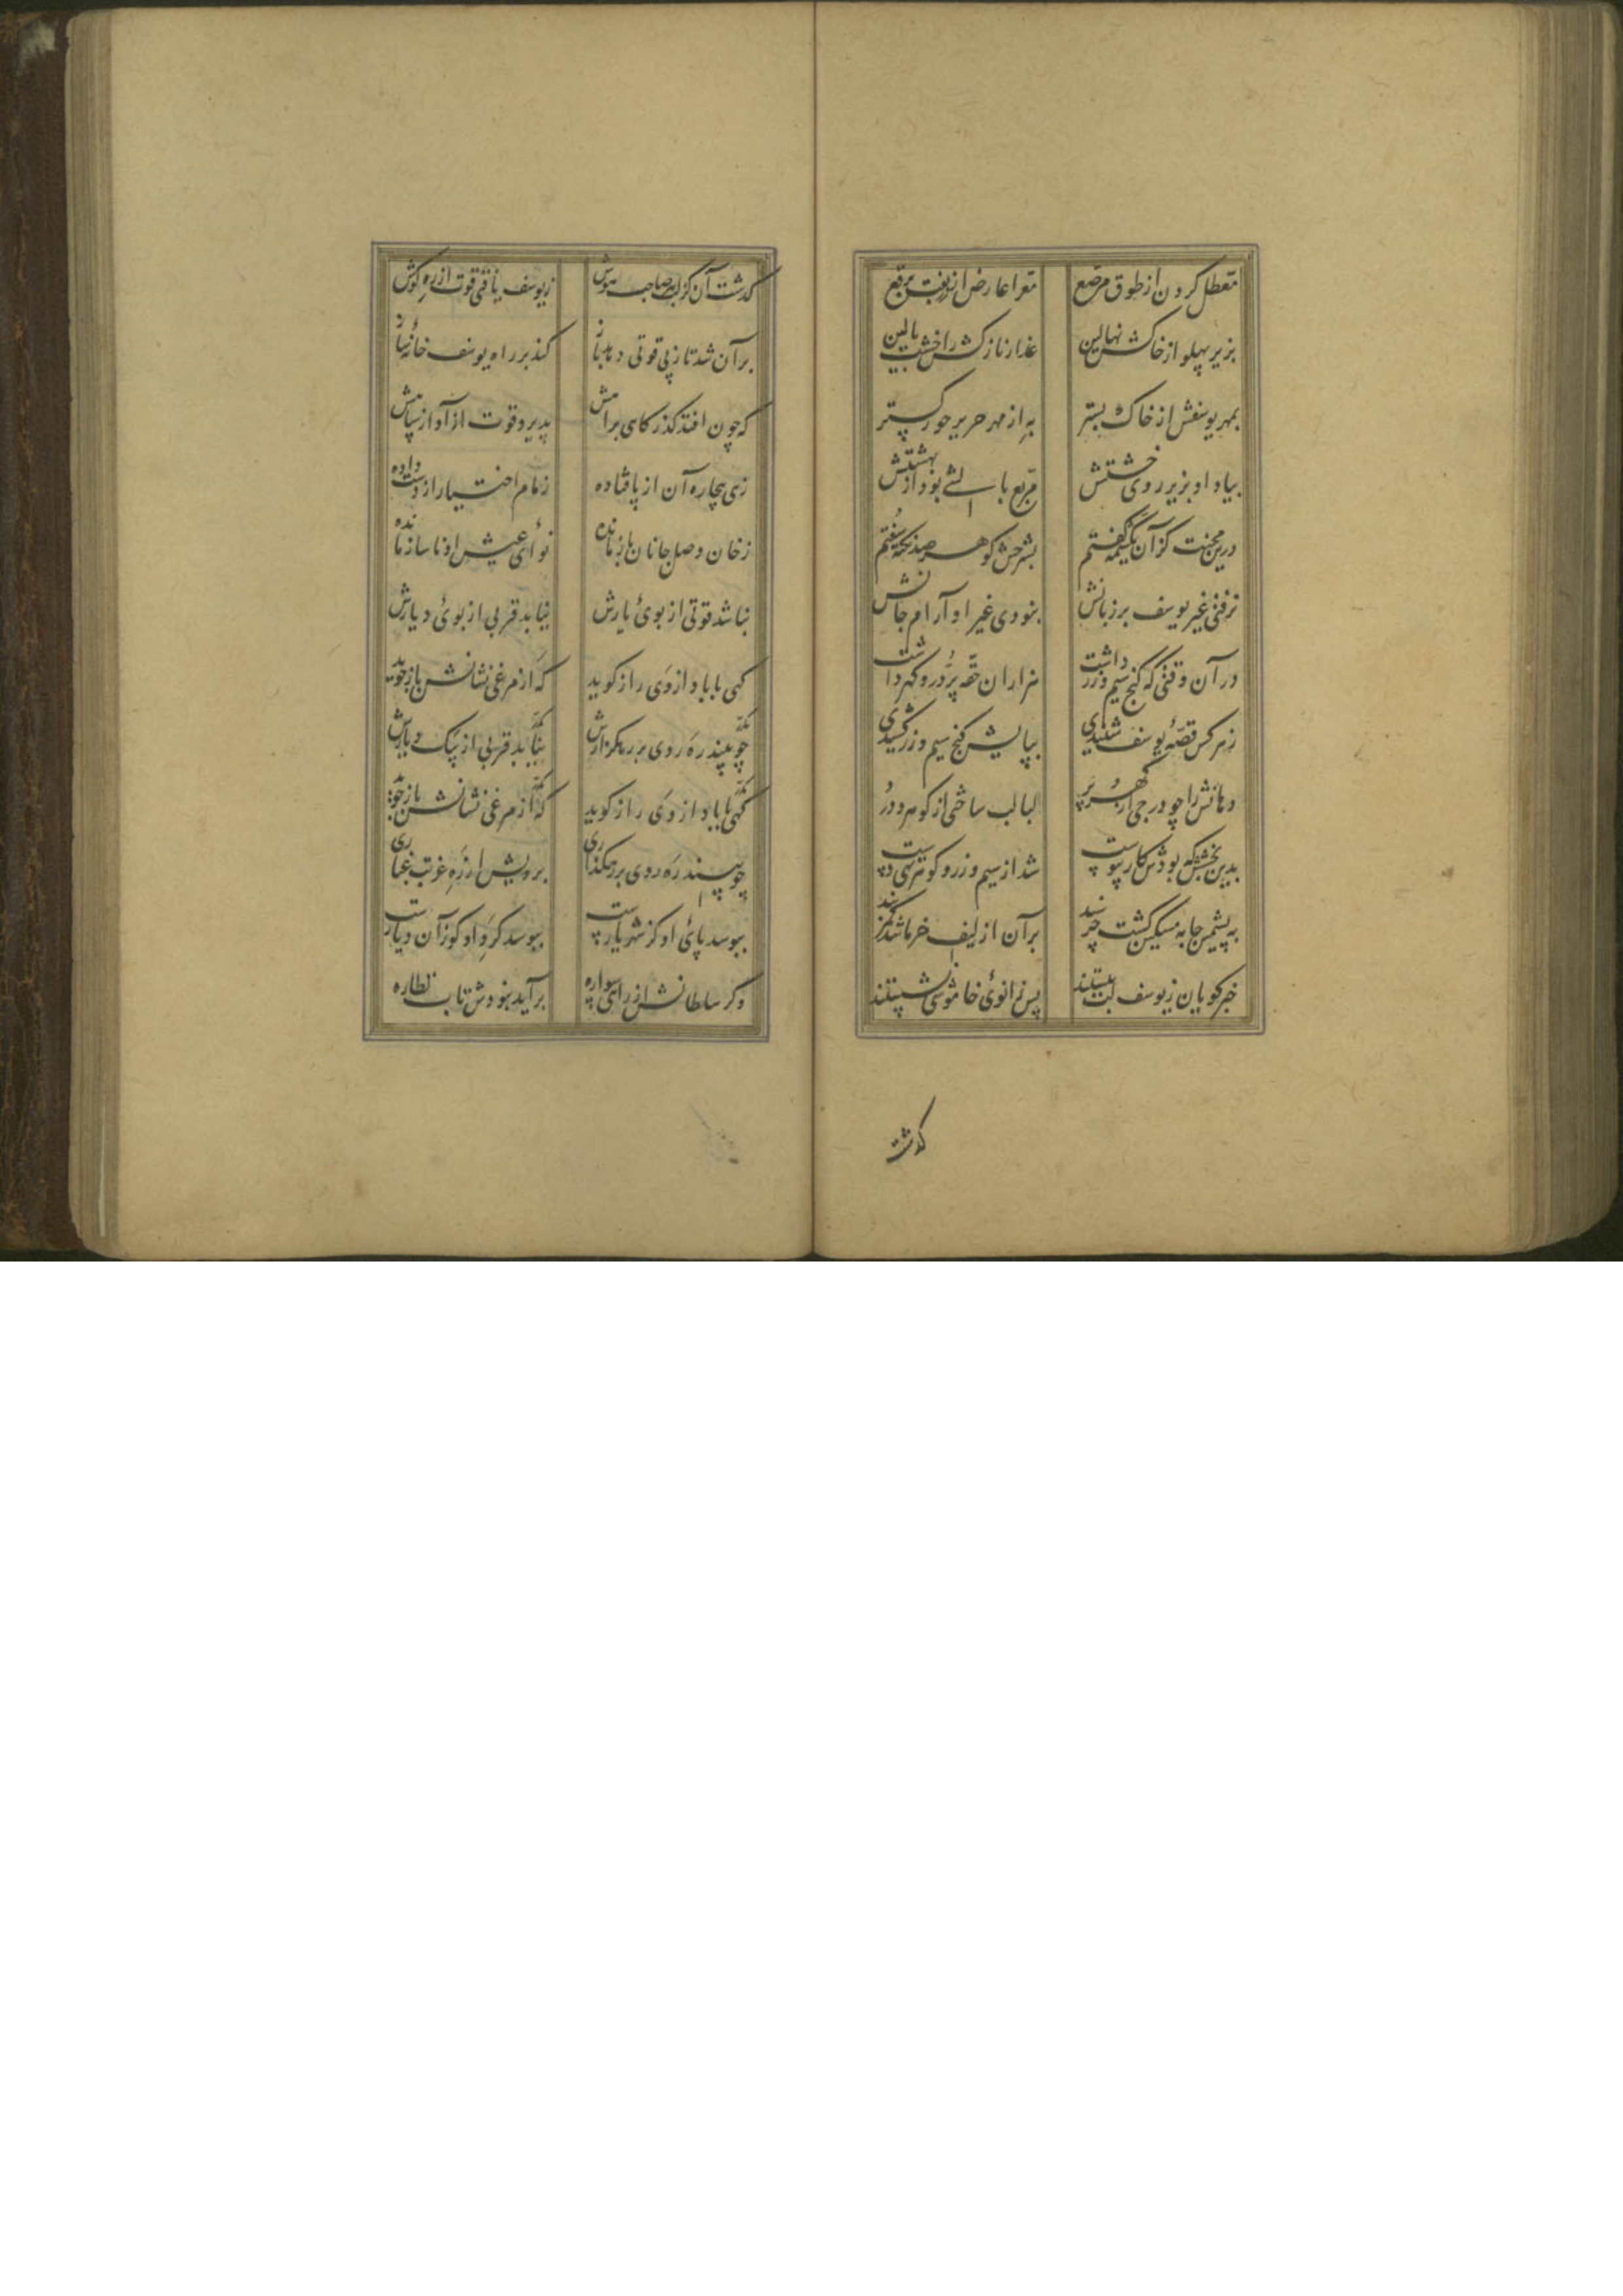 معطل گردن از طوق مرصع معرا عارض از زربفت برقع
بزیر پهلو از خاکش نهالین عذار نازکش را خشت بالین
بمهر یوسفش از خاک بستر به از مهر حریر حور گستر
بیاد او بزیر روی خشتش مربع بالشی بود از بهشتش
درین محنت کزان یک شمه گفتم بشرحش گوهر صد نکته سفتم
نرفتی غیر یوسف بر زبانش نبودی غیر او آرام جانش
در آن وقتی که گنج سیم و زر داشت هزاران حقه پر در و گهر داشت
ز هر کس قصهٔ یوسف شنیدی بپایش گنج سیم و زر کشیدی
دهانش را چو درجی از گهر پر لبالب ساختی از گوهر و در
بدین بخشش که بودش کار پیوست شد از سیم و زر و گوهر تهی دست
به پشمین جابه مسکین گشت خرسند بر آن از لیف خرما شد کمربند
خبرگویان ز یوسف لب ببستند پس زانوی خاموشی نشستند
گذشت
گذشت آن کز لب هر صاحب هوش ز یوسف یافتی قوت از ره گوش
بر آن شد تا ز بی قوتی دهد باز کند بر راه یوسف خانهٔ ساز
که چون افتد گذر گاهی براهش پذیرد قوت از آواز سپاهش
زهی بیچاره آن از پا فتاده زمام اختیار از دست داده
ز خان وصل جانان باز مانده نوای عیش او ناساز مانده
نباشد قوتی از بوی یارش نیابد قربی از بوی دیارش
گهی با باد از وی راز گوید که از مرغی نشانش باز جوید
چو بیند ره روی بر رهگذارش نیابد قربی از پیک دیارش
گهی با باد از وی راز گوید که از مرغی نشانش باز جوید
چو بیند ره روی بر رهگذاری برویش از ره غربت غباری
ببوسد پای او کز شهر یار است ببوسد گرد او کو زآن دیار است
وگر سلطانش از راهی سواره برآید نبودش تاب نظاره